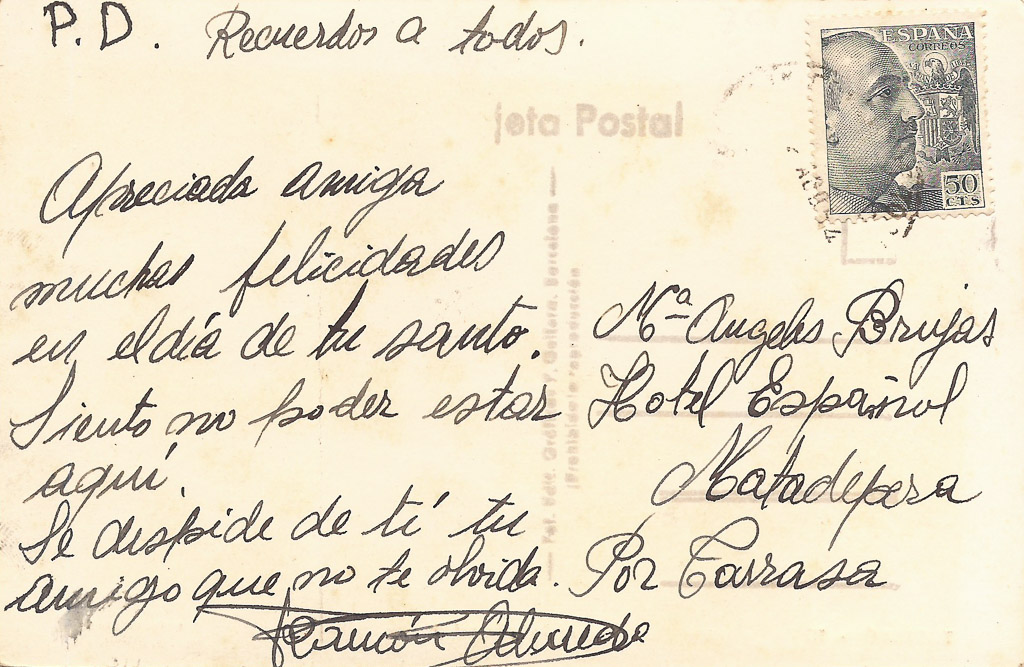 P.D. Recuerdos a todos.
ESPAÑA
CORREOS
50
CTS
jeta Postal
Apreciada amiga
muchas felicidades
en el día de tu santo.
Siento no poder estar
aquí.
Se despide de tí tu
amigo que no te olvida.
Ramón
Mª Angeles Brujas
Hotel Español
Matadepera
Por Tarrasa
Prohibida la reproducción